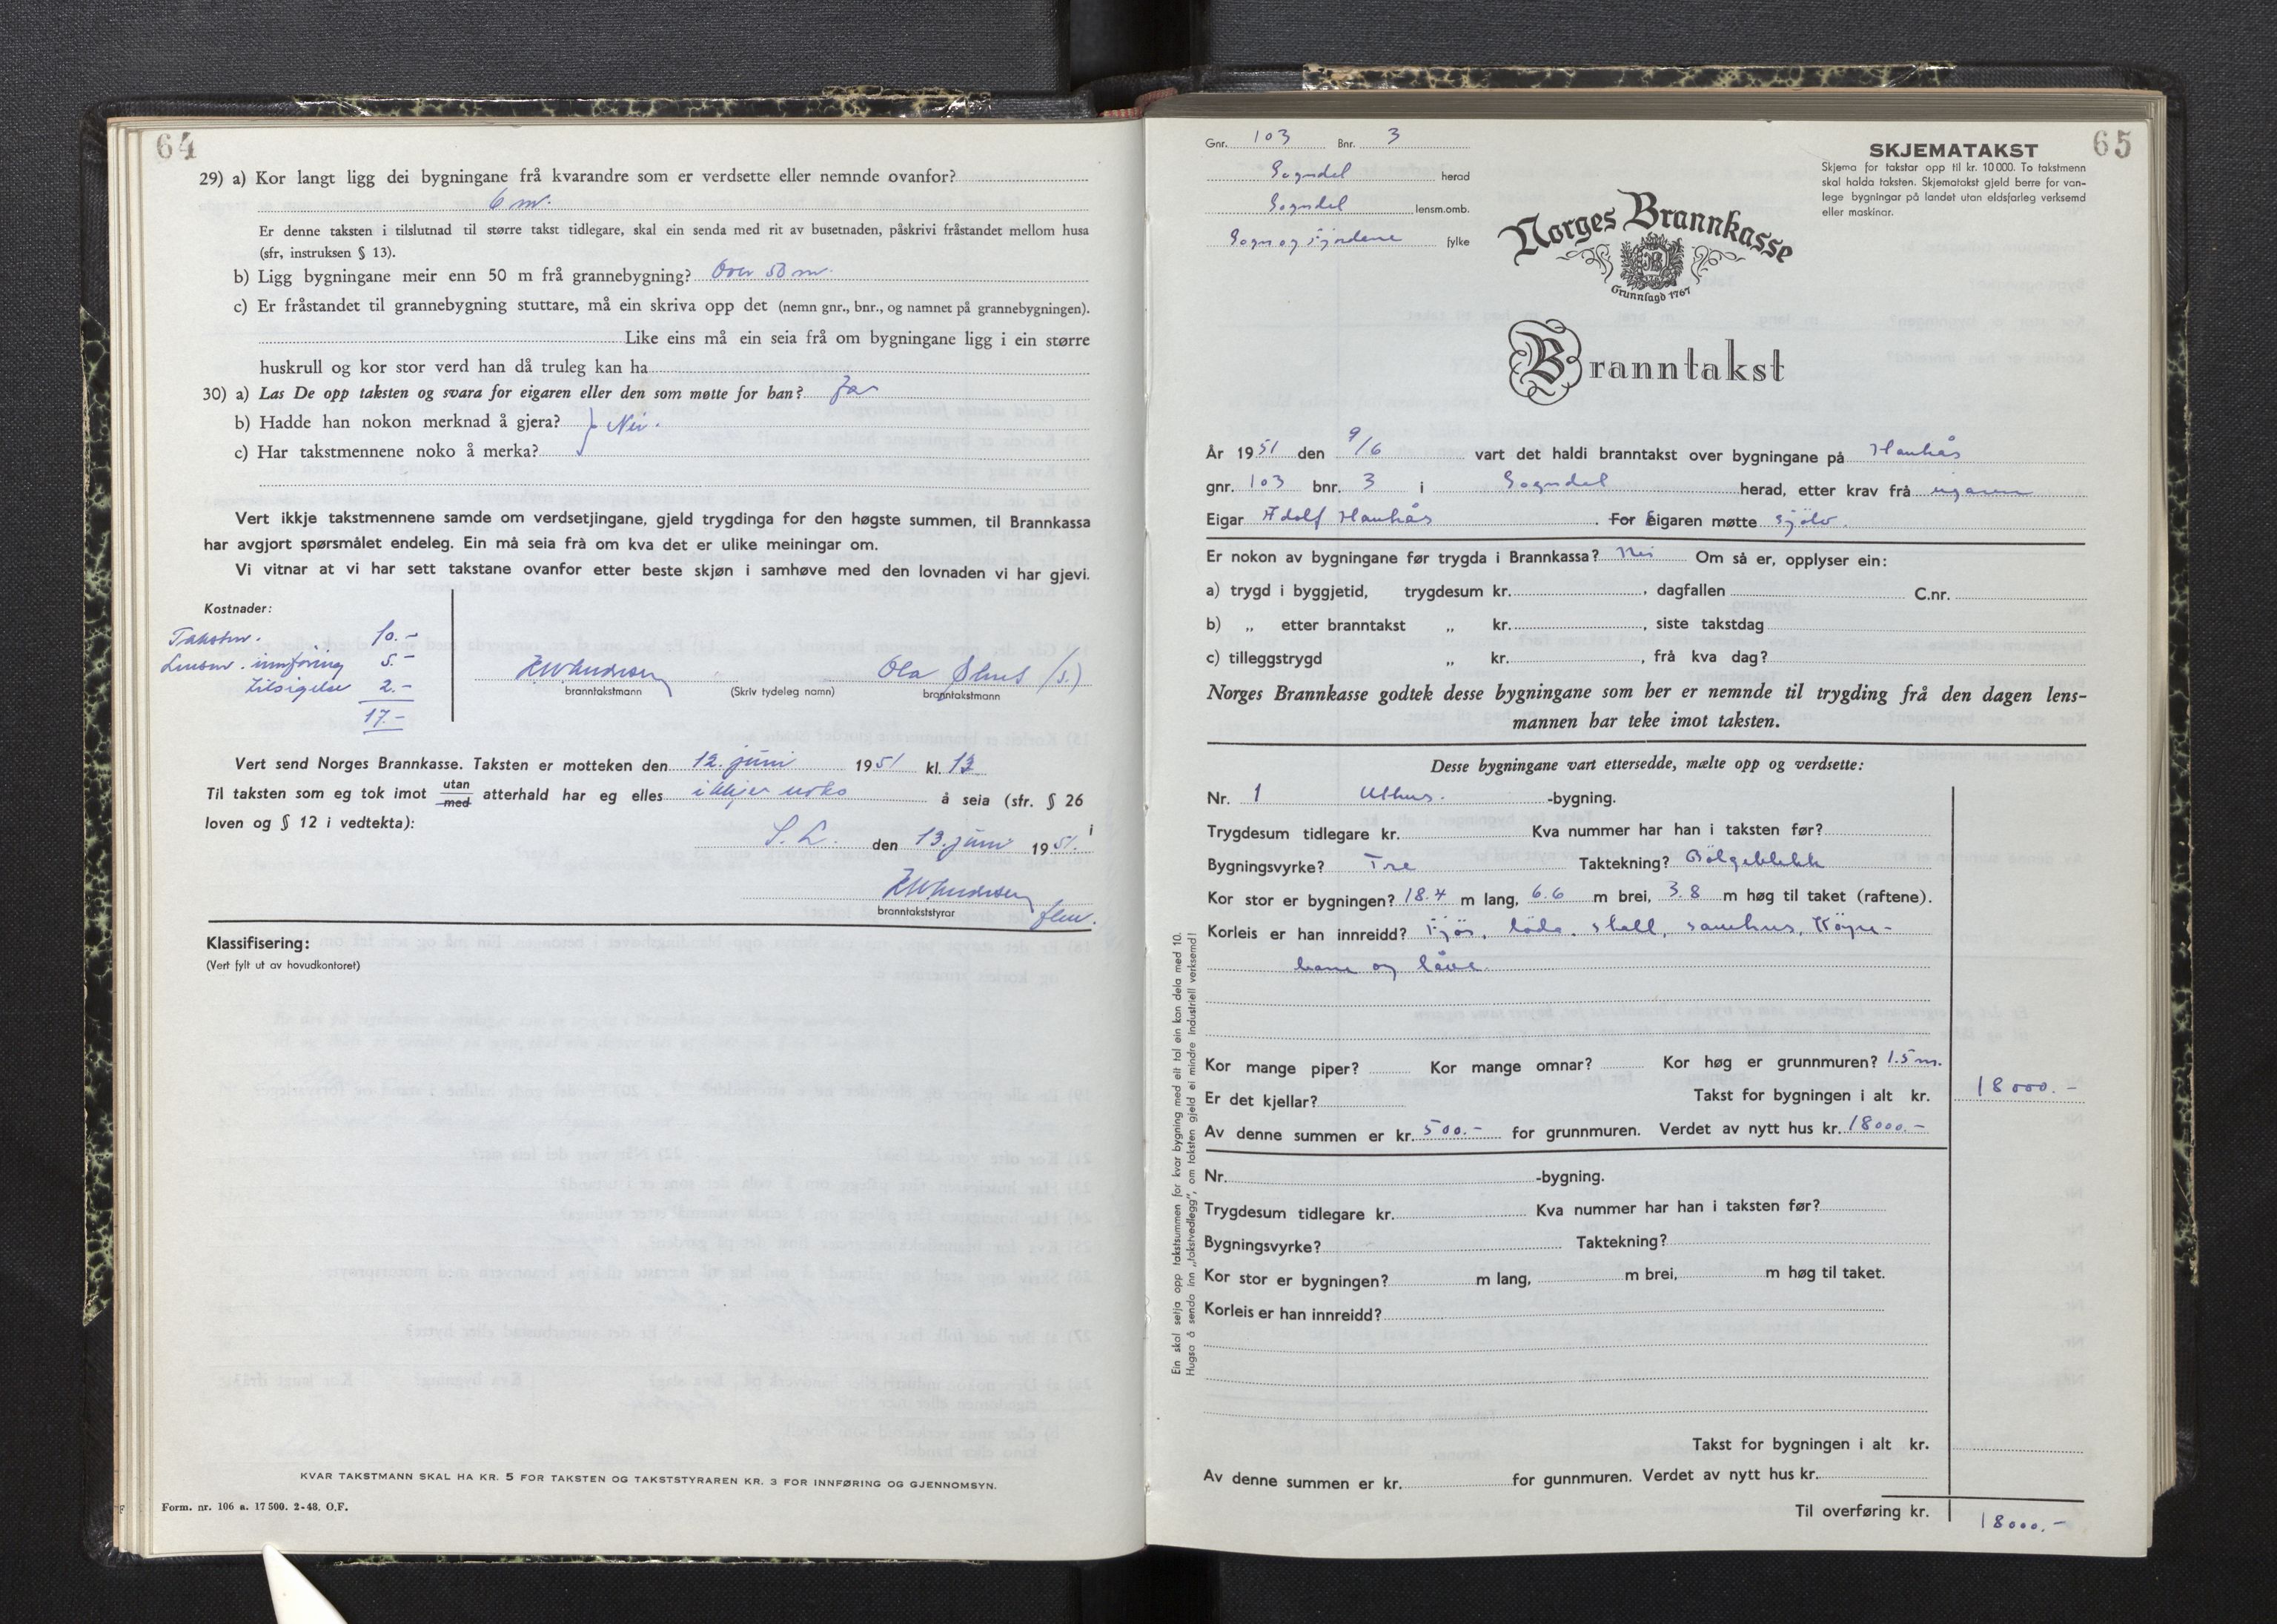 64
29) a) Kor langt ligg dei bygningane frå kvarandre som er verdsette eller nemnde ovanfor?
6 m.
Er denne taksten i tilslutnad til større takst tidlegare, skal ein senda med rit av busetnaden, påskrivi fråstandet mellom husa
(sfr, instruksen § 13).
b) Ligg bygningane meir enn 50 m frå grannebygning? Over 50 m.
c) Er fråstandet til grannebygning stuttare, må ein skriva opp det (nemn gnr., bnr., og namnet på grannebygningen).
Like eins må ein seia frå om bygningane ligg i ein større
huskrull og kor stor verd han då truleg kan ha
30) a) Las De opp taksten og svara for eigaren eller den som møtte for han? Ja
b) Hadde han nokon merknad å gjera? } Nei.
c) Har takstmennene noko å merka?
Vert ikkje takstmennene samde om verdsetjingane, gjeld trygdinga for den høgste summen, til Brannkassa
har avgjort spørsmålet endeleg. Ein må seia frå om kva det er ulike meiningar om.
Vi vitnar at vi har sett takstane ovanfor etter beste skjøn i samhøve med den lovnaden vi har gjevi.
Kostnader:
Takstm. 10.-
Lensm. innføring 5.-
Tilsigelse 2.-
17.-
Ola (s.)
branntakstmann (Skriv tydeleg namn) branntakstmann
Vert send Norges Brannkasse. Taksten er motteken den 12. juni 1951 kl. 13
Til taksten som eg tok imot utan/med atterhald har eg elles ikkje noko å seia (sfr. § 26 i
loven og § 12 i vedtekta):
S. L. den 13. juni 1951.
branntakststyrar
Klassifisering:
(Vert fylt ut av hovudkontoret)
KVAR TAKSTMANN SKAL HA KR. 5 FOR TAKSTEN OG TAKSTSTYRAREN KR. 3 FOR INNFØRING OG GJENNOMSYN.
Form. nr. 106 a. 17 500. 2-48. O.F.
65
Gnr. 103 Bnr. 3
Sogndal herad
Sogndal lensm.omb.
Sogn og Fjordane fylke
SKJEMATAKST
Skjema for takstar opp til kr. 10 000. To takstmenn
skal halda taksten. Skjematakst gjeld berre for van-
lege bygningar på landet utan eldsfarleg verksemd
eller maskinar.
Norges Brannkasse
Grunnlagd 1767
Branntakst
År 1951 den 9/6 vart det haldi branntakst over bygningane på Haukås
gnr. 103 bnr. 3 i Sogndal herad, etter krav frå eigaren
Eigar Adolf Haukås. For Eigaren møtte sjølv.
Er nokon av bygningane før trygda i Brannkassa? Nei Om så er, opplyser ein:
a) trygd i byggjetid, trygdesum kr. , dagfallen C.nr.
b) „ etter branntakst „ kr. , siste takstdag
c) tilleggstrygd „ kr. , frå kva dag?
Norges Brannkasse godtek desse bygningane som her er nemnde til trygding frå den dagen lens-
mannen har teke imot taksten.
Desse bygningane vart ettersedde, mælte opp og verdsette:
Nr. 1 Uthus. -bygning.
Trygdesum tidlegare kr. Kva nummer har han i taksten før?
Bygningsvyrke? Tre Taktekning? Bølgeblekk
Kor stor er bygningen? 18.4 m lang, 6.6 m brei, 3.8 m høg til taket (raftene).
Korleis er han innreidd? Fjøs, løda, stall, sauehus, Köyre-
bane og låve.
Kor mange piper? Kor mange omnar? Kor høg er grunnmuren? 1.5 m.
Er det kjellar? Takst for bygningen i alt kr. 18000.-
Av denne summen er kr. 500.- for grunnmuren. Verdet av nytt hus kr. 18000.-
Nr. -bygning.
Trygdesum tidlegare kr. Kva nummer har han i taksten før?
Bygningsvyrke? Taktekning?
Kor stor er bygningen? m lang, m brei, m høg til taket.
Korleis er han innreidd?
Takst for bygningen i alt kr.
Av denne summen er kr. for gunnmuren. Verdet av nytt hus kr.
Til overføring kr. 18000.-
Ein skal setja opp takstsummen for kvar bygning med eit tal ein kan dela med 10.
Hugsa å senda inn „takstvedlegg", om taksten gjeld ei mindre industriell verksemd!